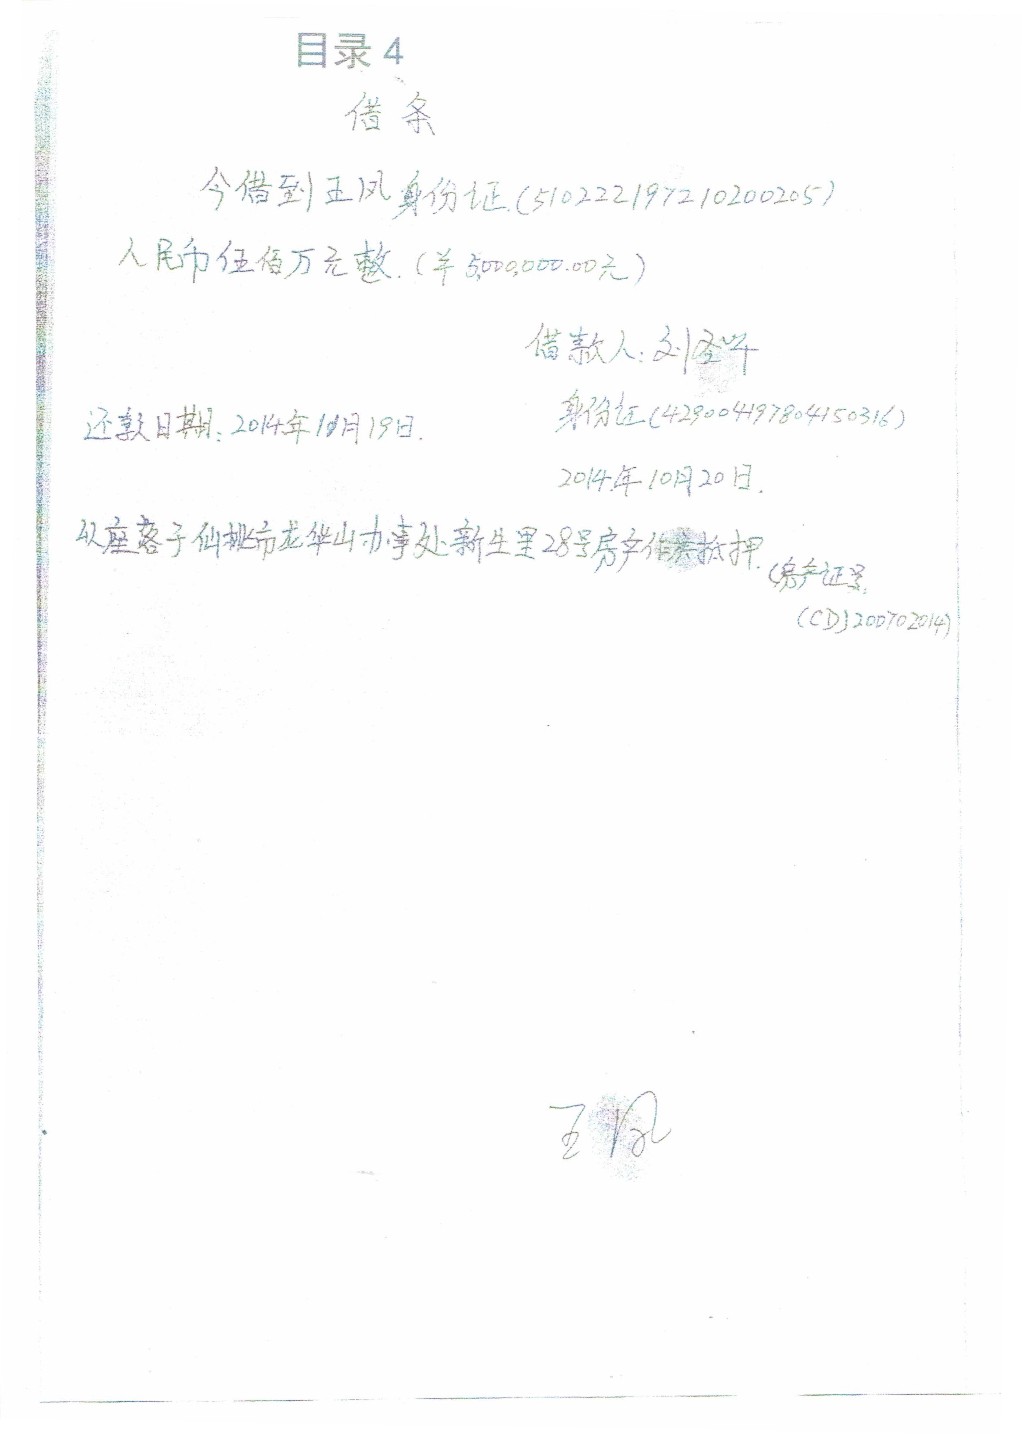 目录 4
借条
今借到王凤身份证(510222197210200205)
人民币伍佰万元整.(羊5,000,000.00元)
借款人:刘圣
还款日期:2014年11月19日.
身份证(429004197804150316)
2014年10月20日.
以座落于仙桃市龙华山办事处新生里28号房产作为抵押.
(房产证号,
(CD)200702014)
王凤